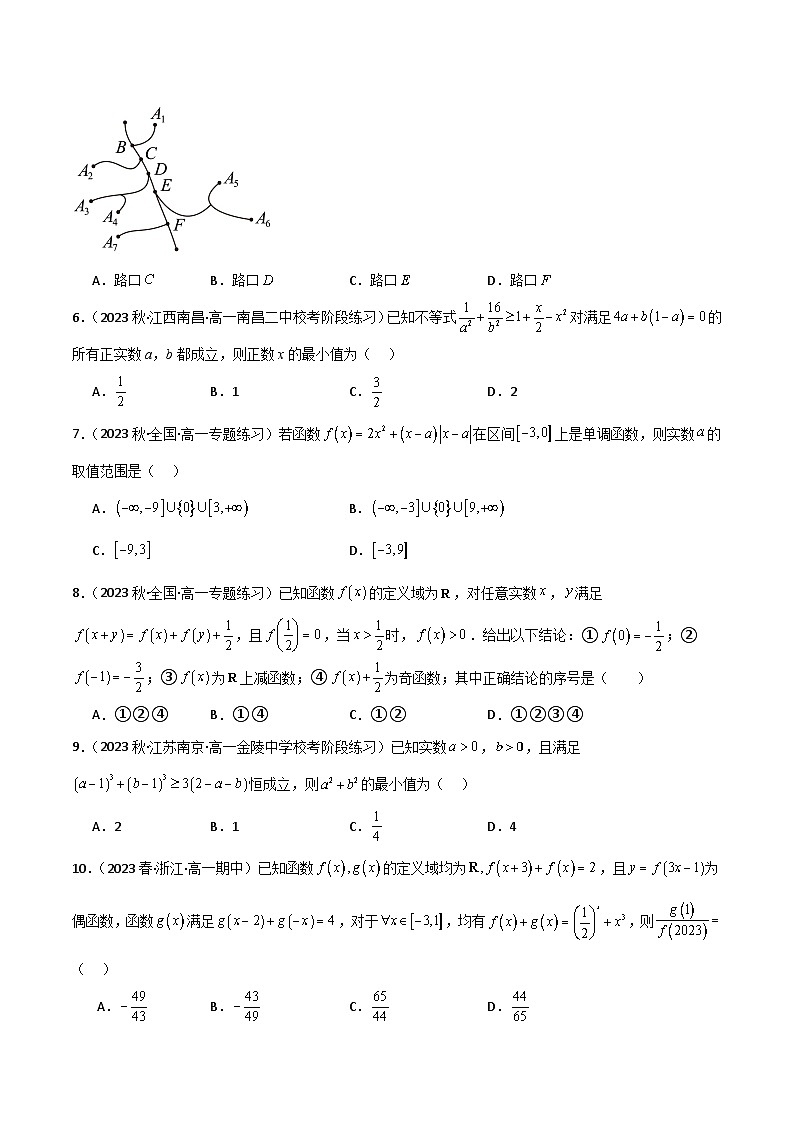 A₁
B
C
A₂
D
E
A₅
A₃
A₄
A₆
F
A₇
A．路口 C B．路口 D C．路口 E D．路口 F
6.（2023秋·江西南昌·高一南昌二中校考阶段练习）已知不等式 1/a² + 16/b² ≥ 1 + x/2 − x² 对满足 4a + b(1 − a) = 0 的
所有正实数 a，b 都成立，则正数 x 的最小值为（ ）
A．1/2 B．1 C．3/2 D．2
7.（2023秋·全国·高一专题练习）若函数 f(x) = 2x² + (x − a)|x − a| 在区间 [−3,0] 上是单调函数，则实数 a 的
取值范围是（ ）
A．(−∞,−9]∪{0}∪[3,+∞) B．(−∞,−3]∪{0}∪[9,+∞)
C．[−9,3] D．[−3,9]
8.（2023秋·全国·高一专题练习）已知函数 f(x) 的定义域为 R，对任意实数 x，y 满足
f(x + y) = f(x) + f(y) + 1/2，且 f(1/2) = 0，当 x > 1/2 时，f(x) > 0．给出以下结论：① f(0) = −1/2；②
f(−1) = −3/2；③ f(x) 为 R 上减函数；④ f(x) + 1/2 为奇函数；其中正确结论的序号是（ ）
A．①②④ B．①④ C．①② D．①②③④
9.（2023秋·江苏南京·高一金陵中学校考阶段练习）已知实数 a > 0，b > 0，且满足
(a − 1)³ + (b − 1)³ ≥ 3(2 − a − b) 恒成立，则 a² + b² 的最小值为（ ）
A．2 B．1 C．1/4 D．4
10.（2023春·浙江·高一期中）已知函数 f(x), g(x) 的定义域均为 R, f(x + 3) + f(x) = 2，且 y = f(3x − 1) 为
偶函数，函数 g(x) 满足 g(x − 2) + g(−x) = 4，对于 ∀x∈[−3,1]，均有 f(x) + g(x) = (1/2)ˣ + x³，则 g(1)/f(2023) =
（ ）
A．−49/43 B．−43/49 C．65/44 D．44/65